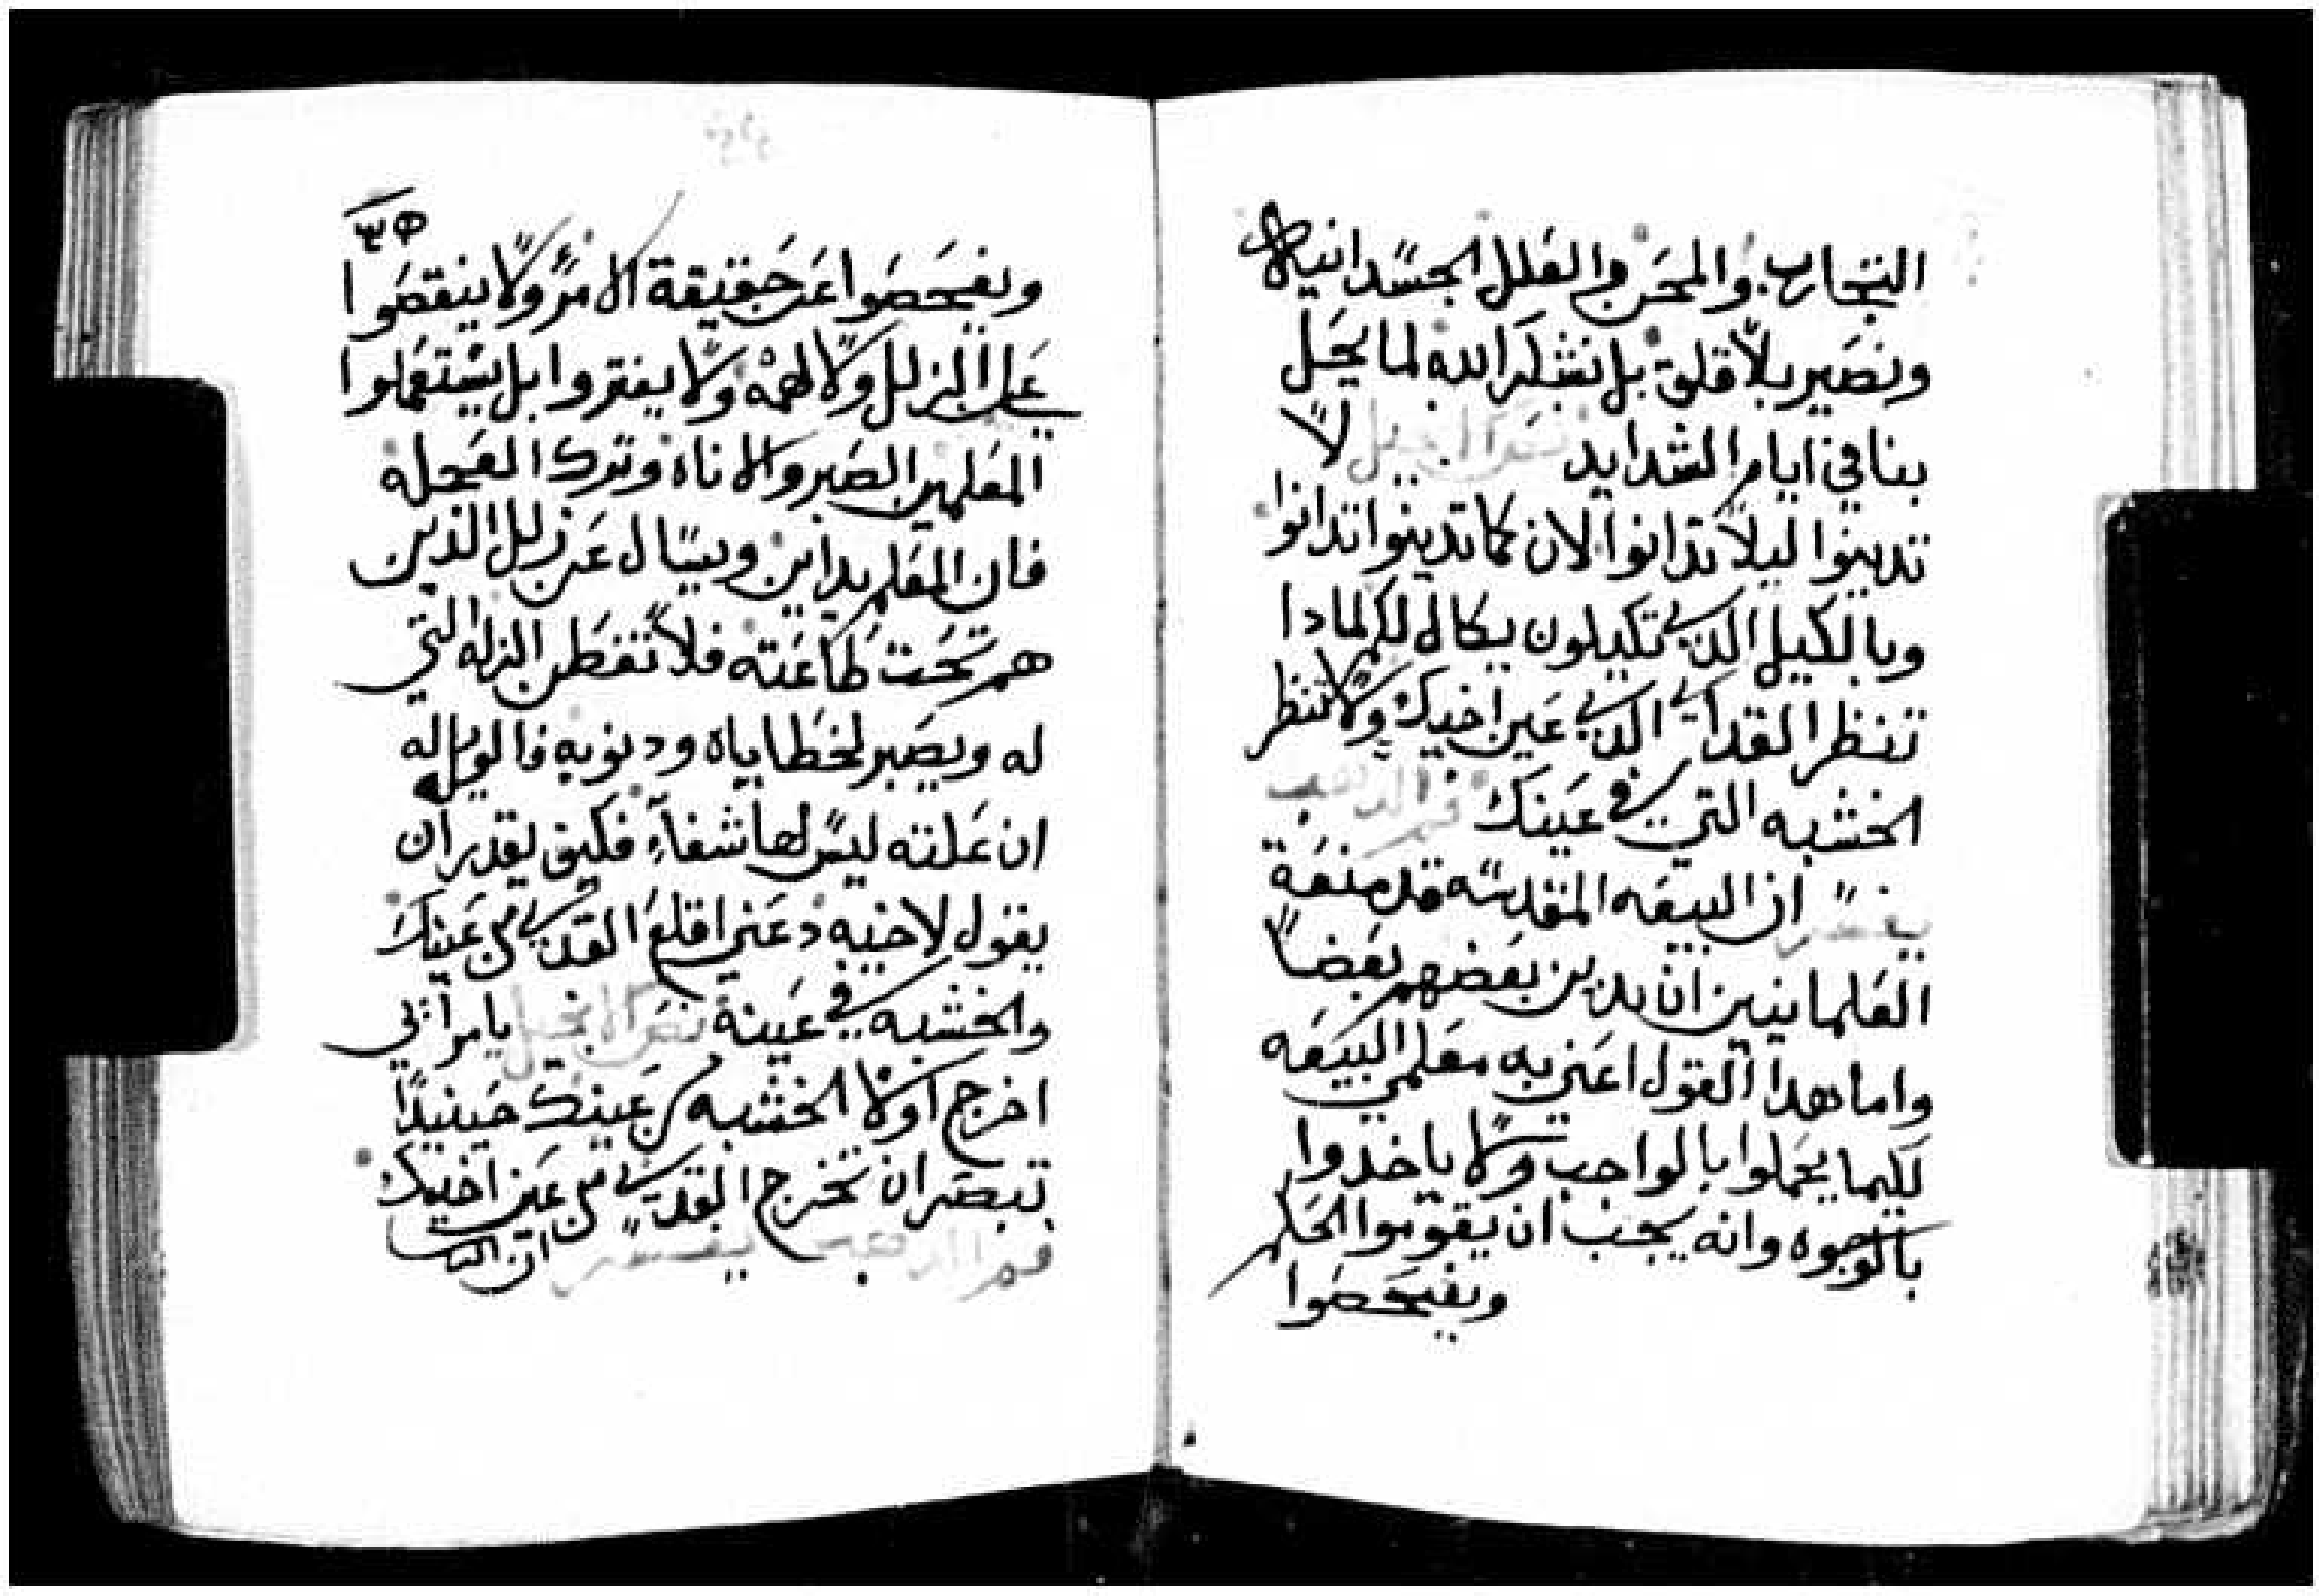 التجارب والمحن والعلل الجسدانيه
ونصير بلا قلق بل نشكر الله لما يحل
بنا في ايام الشدايد نص الانجيل لا
تدينوا ليلا تدانوا الان كما تدينوا تدانوا
وبالكيل الدي تكيلون يكال لكم لمادا
تنظر القدا الدي عين اخيك ولا تنظر
الخشبه التي في عينك فم الدهب
يفسر ان البيعه المقدسه قد منعة
العلمانيين ان يدين بعضهم بعضا
واما هدا القول اعني به معلمي البيعه
لكيما يحملوا بالواجب ولا ياخدوا
بالوجوه وانه يجب ان يقوموا الحكم
ويفحصوا
ويفحصوا عن حقيقة الامر ولا ينقصوا
علي الزلل ولا لهمه ولا يفتروا بل يستعملوا
المعلمين الصبر والاناه وترك العجله
فان المعلم يداين ويسال عن زلل الذين
هم تحت طاعته فلا تفطن الزله التي
له ويصبر لخطاياه ودنوبه فالويل له
ان علته ليس لها شفاء فكيف يقدر ان
يقول لاخيه دعني اقلع القدي من عينك
والخشبه في عينة نص الانجيل يا مرائي
اخرج اولا الخشبه من عينك حينيدا
تبصر ان تخرج القدي من عين اخيك
فم الدهب يفسر ان